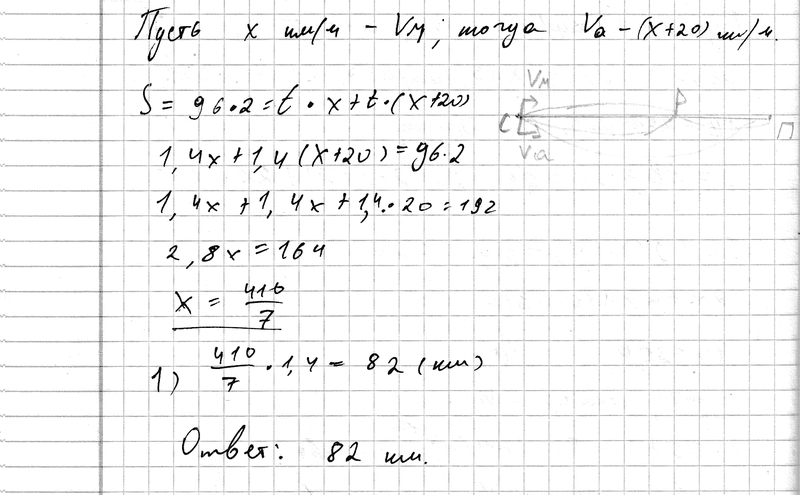 Пусть x км/ч - Vм, тогда Va - (x+20) км/ч.
S = 96·2 = t · x + t · (x+20)
1,4x + 1,4(x+20) = 96·2
1,4x + 1,4x + 1,4·20 = 192
2,8x = 164
x = 410/7
1) 410/7 · 1,4 = 82 (км)
Ответ: 82 км.
Vм
C
P
П
Va